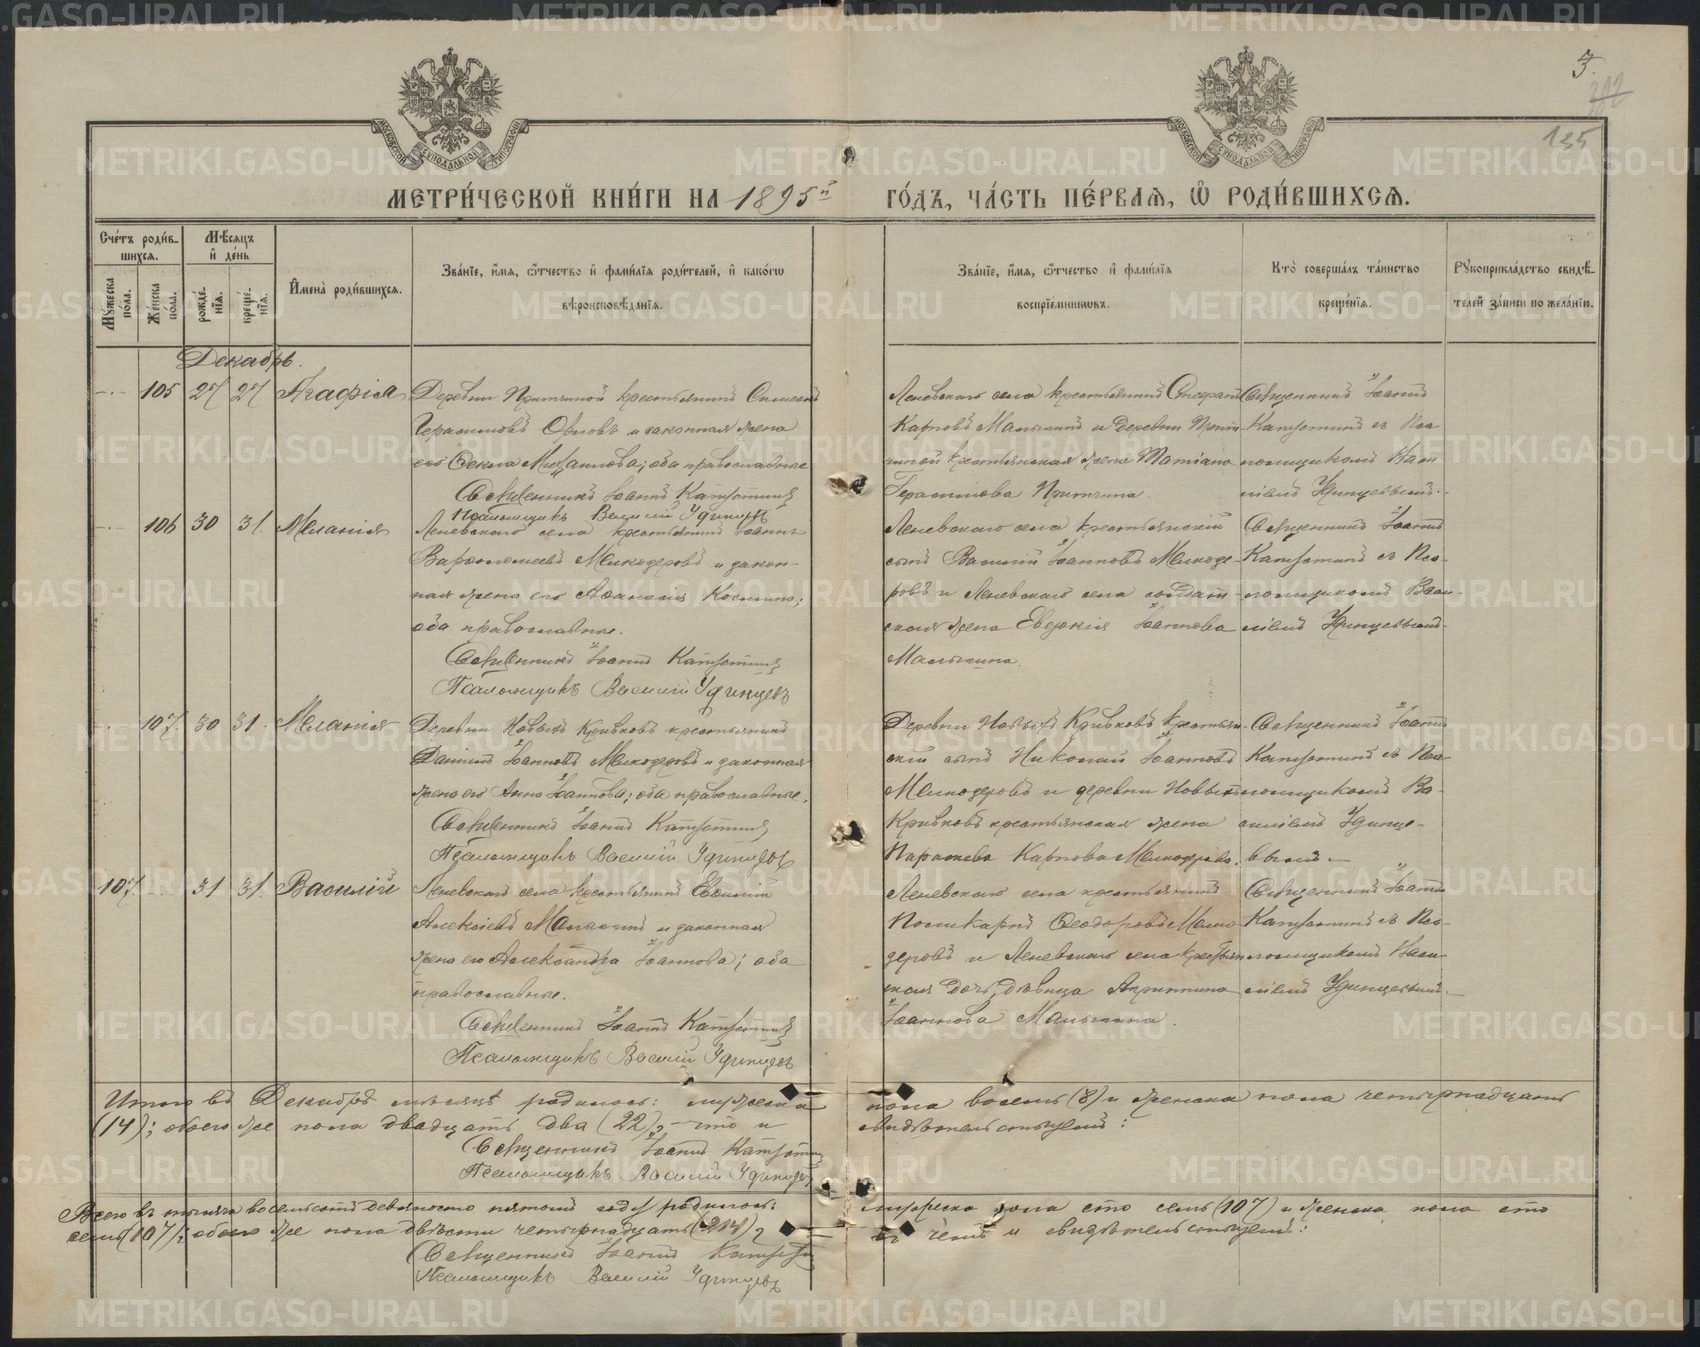 З.
202
135
МЕТРИ́ЧЕСКОЙ КНИ́ГИ НА 1895й ГО́ДЪ, ЧА́СТЬ ПЕ́РВАЯ, Ѡ РОДИ́ВШИХСЯ.
Сче́тъ роди́вшихся.
Мѣ́сяцъ и де́нь
Му́жеска по́ла.
Же́нска по́ла.
рожде́нїя.
креще́нїя.
И́мена̀ роди́вшихся.
Зва́нїе, и́мя, ѻ́тчество и фами́лїя роди́телей, и како́гѡ
вѣроисповѣ́данїя.
Зва́нїе, и́мя, ѻ́тчество и фами́лїя
воспрїе́мникѡвъ.
Кто̀ соверша́лъ та́инство
креще́нїя.
Рꙋкоприкла́дство свидѣ́-
телей за́писи по жела́нїю.
Декабрь.
105 27 27 Агафія
Деревни Притчиной крестьянинъ
Герасимовъ и законная жена
его Ѳекла; оба православные
Священникъ Іоаннъ
Псаломщикъ Василій Удинцевъ
Леневскаго села крестьянинъ
Карповъ Малыгинъ и деревни Прит-
чиной крестьянская жена Татіана
Герасимова Притчина.
Священникъ Іоаннъ
съ Пса-
ломщикомъ Васи-
ліемъ Удинцевымъ.
106 30 31. Меланія
Леневскаго села крестьянинъ Іоаннъ
Варѳоломеевъ Мелкозеровъ и закон-
ная жена его Аѳанасія Косьмина;
оба православные.
Священникъ Іоаннъ
Псаломщикъ Василій Удинцевъ
Леневскаго села крестьянскій
сынъ Василій Іоанновъ Мелкозе-
ровъ и Леневскаго села солдат-
ская жена Евдокія Іоаннова
Малыгина.
Священникъ Іоаннъ
съ Пса-
ломщикомъ Васи-
ліемъ Удинцевымъ.
107. 30 31. Меланія
Деревни Новыхъ Кривковъ крестьянинъ
Даніилъ Іоанновъ Мелкозеровъ и законная
жена его Анна Іоаннова; оба православные.
Священникъ Іоаннъ
Псаломщикъ Василій Удинцевъ
Деревни Новыхъ Кривковъ крестьян-
скій сынъ Николай Іоанновъ
Мелкозеровъ и деревни Новыхъ
Кривковъ крестьянская жена
Параскева Карпова Мелкозерова.
Священникъ Іоаннъ
съ Пса-
ломщикомъ Ва-
силіемъ Удинце-
вымъ.
107. 31 31. Василій
Леневскаго села крестьянинъ
Алексіевъ Малыгинъ и законная
жена его Александра Іоаннова; оба
православные.
Священникъ Іоаннъ
Псаломщикъ Василій Удинцевъ
Леневскаго села крестьянинъ
Поликарпъ Ѳеодоровъ Мелко-
зеровъ и Леневскаго села крестьян-
ская дочь, дѣвица Агриппина
Іоаннова Малыгина.
Священникъ Іоаннъ
съ Пса-
ломщикомъ Васи-
ліемъ Удинцевымъ.
Итого въ Декабрѣ мѣсяцѣ родилось: мужеска пола восемь (8) и женска пола четырнадцать
(14); обоего же пола двадцать два (22), что и свидѣтельствуемъ:
Священникъ Іоаннъ
Псаломщикъ Василій Удинцевъ
Всего въ тысяча восемьсотъ девяносто пятомъ году родилось: мужеска пола сто семь (107) и женска пола сто
семь (107); обоего же пола двѣсти четырнадцать (214), въ чемъ и свидѣтельствуемъ:
Священникъ Іоаннъ
Псаломщикъ Василій Удинцевъ
METRIKI.GASO-URAL.RU